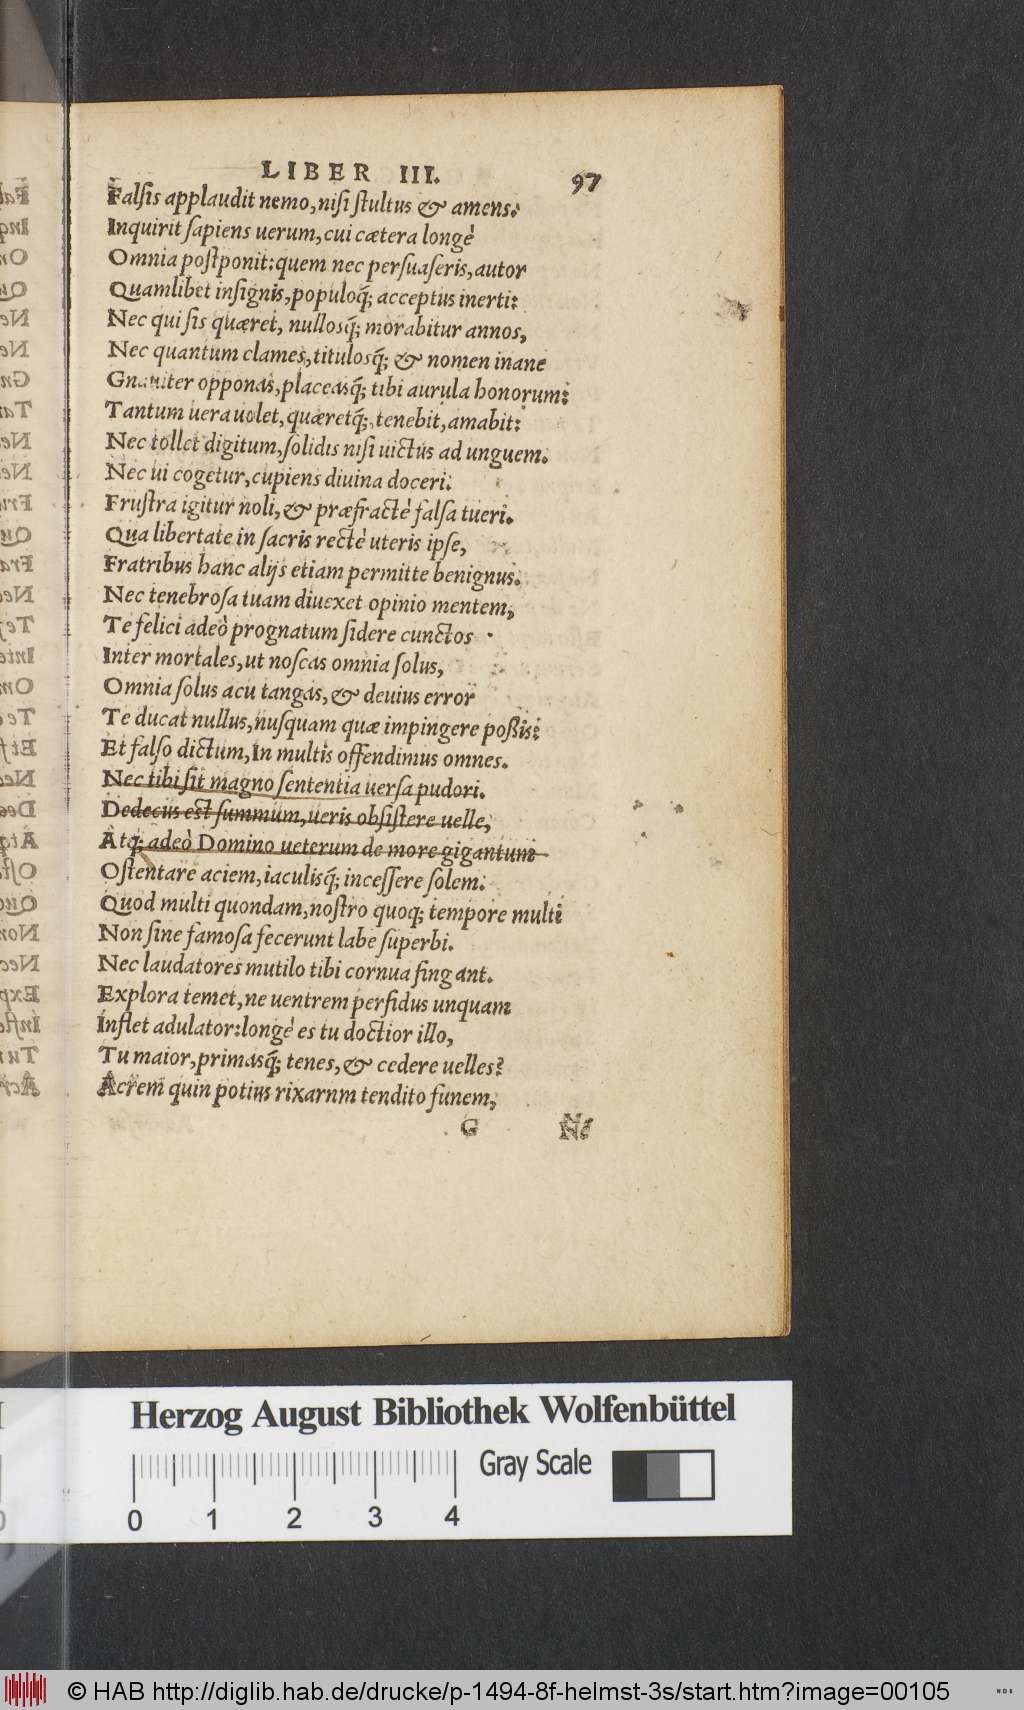 LIBER III. 97
Falsis applaudit nemo, nisi stultus & amens:
Inquirit sapiens uerum, cui cætera longè
Omnia postponit: quem nec persuaseris, autor
Quamlibet insignis, populoq; acceptus inerti:
Nec qui sis quæret, nullosq; morabitur annos,
Nec quantum clames, titulosq; & nomen inane
Gnauiter opponas, placeasq; tibi aurula honorum:
Tantum uera uolet, quæretq;, tenebit, amabit:
Nec tollet digitum, solidis nisi uictus ad unguem.
Nec ui cogetur, cupiens diuina doceri.
Frustra igitur noli, & præfractè falsa tueri.
Qua libertate in sacris rectè uteris ipse,
Fratribus hanc alijs etiam permitte benignus.
Nec tenebrosa tuam diuexet opinio mentem,
Te felici adeò prognatum sidere cunctos
Inter mortales, ut noscas omnia solus,
Omnia solus acu tangas, & deuius error
Te ducat nullus, nusquam quæ impingere poßis:
Et falso dictum, In multis offendimus omnes.
Nec tibi sit magno sententia uersa pudori.
Dedecus est summum, ueris obsistere uelle,
Atq; adeò Domino ueterum de more gigantum
Ostentare aciem, iaculisq; incessere solem.
Quod multi quondam, nostro quoq; tempore multi
Non sine famosa fecerunt labe superbi.
Nec laudatores mutilo tibi cornua fingant.
Explora temet, ne uentrem perfidus unquam
Inflet adulator: longè es tu doctior illo,
Tu maior, primasq; tenes, & cedere uelles?
Acrem quin potius rixarnm tendito funem,
G Ne
Herzog August Bibliothek Wolfenbüttel
Gray Scale
0 1 2 3 4
© HAB http://diglib.hab.de/drucke/p-1494-8f-helmst-3s/start.htm?image=00105